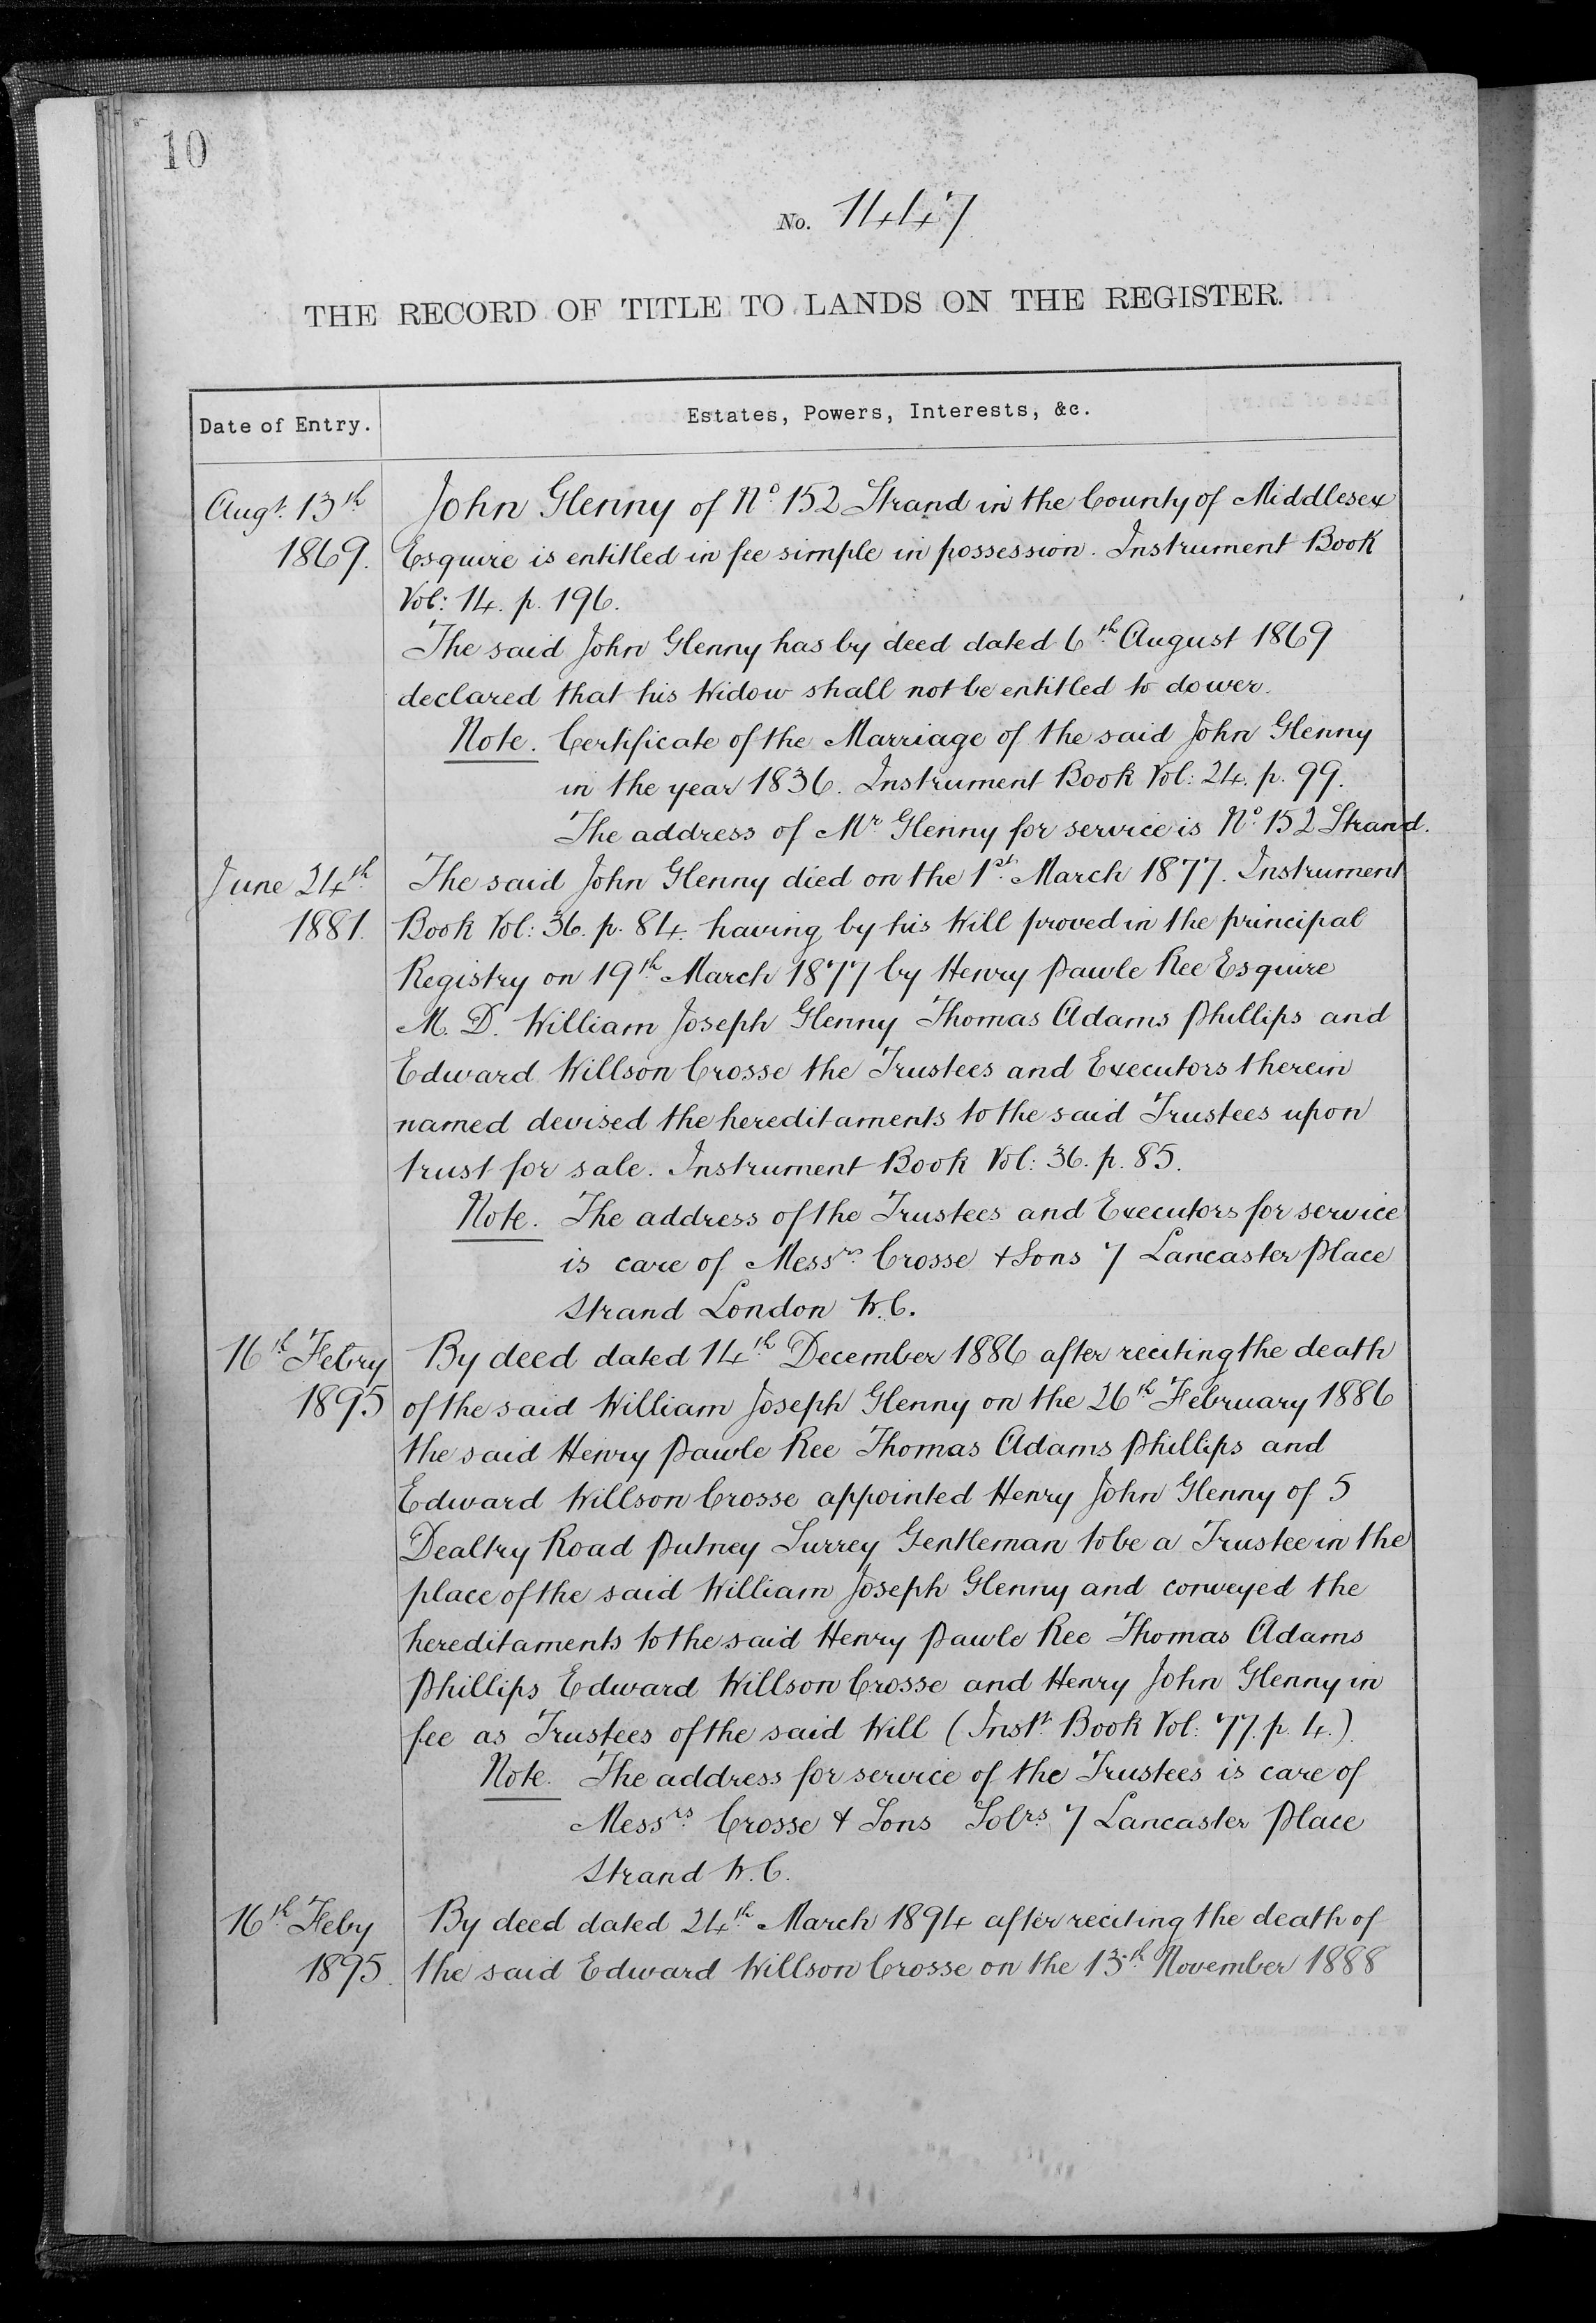 10
No. 1447
THE RECORD OF TITLE TO LANDS ON THE REGISTER.
Date of Entry.
Estates, Powers, Interests, &c.
Augt. 13th
1869.
John Glenny of No. 152 Strand in the County of Middlesex
Esquire is entitled in fee simple in possession. Instrument Book
Vol: 14. p. 196.
The said John Glenny has by deed dated 6th August 1869
declared that his Widow shall not be entitled to dower.
Note. Certificate of the Marriage of the said John Glenny
in the year 1836. Instrument Book Vol: 24. p. 99.
The address of Mr Glenny for service is No. 152 Strand.
June 24th
1881.
The said John Glenny died on the 1st March 1877. Instrument
Book Vol: 36. p. 84. having by his Will proved in the principal
Registry on 19th March 1877 by Henry Pawle Ree Esquire
M. D. William Joseph Glenny Thomas Adams Phillips and
Edward Willson Crosse the Trustees and Executors therein
named devised the hereditaments to the said Trustees upon
trust for sale. Instrument Book Vol: 36. p. 85.
Note. The address of the Trustees and Executors for service
is care of Messrs. Crosse & Sons 7 Lancaster Place
Strand London W.C.
16th Febry
1895
By deed dated 14th December 1886 after reciting the death
of the said William Joseph Glenny on the 26th February 1886
the said Henry Pawle Ree Thomas Adams Phillips and
Edward Willson Crosse appointed Henry John Glenny of 5
Dealtry Road Putney Surrey Gentleman to be a Trustee in the
place of the said William Joseph Glenny and conveyed the
hereditaments to the said Henry Pawle Ree Thomas Adams
Phillips Edward Willson Crosse and Henry John Glenny in
fee as Trustees of the said Will (Instt. Book Vol: 77. p. 4.)
Note. The address for service of the Trustees is care of
Messrs. Crosse & Sons Solrs. 7 Lancaster Place
Strand W.C.
16th Feby
1895.
By deed dated 24th March 1894 after reciting the death of
the said Edward Willson Crosse on the 13th November 1888